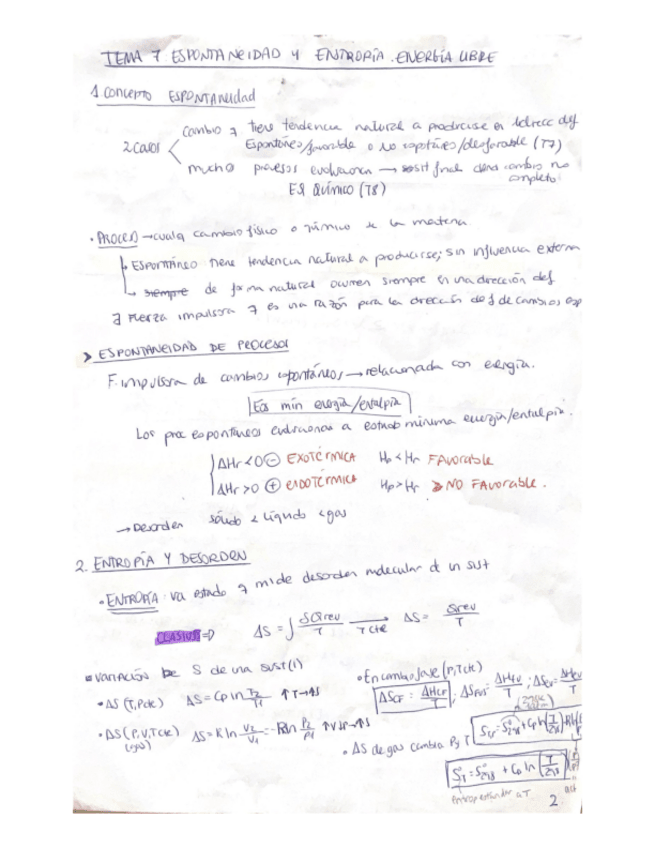 TEMA 7 ESPONTANEIDAD Y ENTROPÍA. ENERGÍA LIBRE
1 Concepto ESPONTANEIDAD
2 casos
cambio q tiene tendencia natural a producirse en 1 direcc def
Espontáneo/favorable o no espontáneo/desfavorable (T7)
muchos procesos evolucionan → sist final dond cambio no completo
EQ QUÍMICO (T8)
• PROCESO → cualq cambio físico o químico de la materia
ESPONTÁNEO tiene tendencia natural a producirse, sin influencia externa
siempre de forma natural ocurren siempre en una dirección def
∃ Fuerza impulsora q es una razón para la dirección def de cambios esp
> ESPONTANEIDAD DE PROCESOS
F. impulsora de cambios espontáneos → relacionada con energía.
mín energía/entalpía
Los proc espontáneos evolucionan a estado mínima energía/entalpía.
ΔHr < 0 ⊖ EXOTÉRMICA Hp < Hr FAVORABLE
ΔHr > 0 ⊕ ENDOTÉRMICA Hp > Hr NO FAVORABLE.
→ Desorden sólido < líquido < gas
2. ENTROPÍA Y DESORDEN
• ENTROPÍA: va estado q mide desorden molecular d un sust
CLASIUS ⇒ ΔS = ∫ δQrev/T → T cte ΔS = Qrev/T
VARIACIÓN DE S de una sust(1)
• ΔS (T, Pcte) ΔS = Cp ln T2/T1 ↑T→↑S
• ΔS (P,V,Tcte) (gas) ΔS = R ln V2/V1 = -R ln P2/P1 ↑V↓P→↑S
• En cambio fase (P,Tcte)
ΔSCF = ΔHCF/T ; ΔSfus = ΔHfus/T ;
• ΔS de gas cambia P y T
S°T = S°298 + Cp ln (T/298)
entrop estándar a T.
2